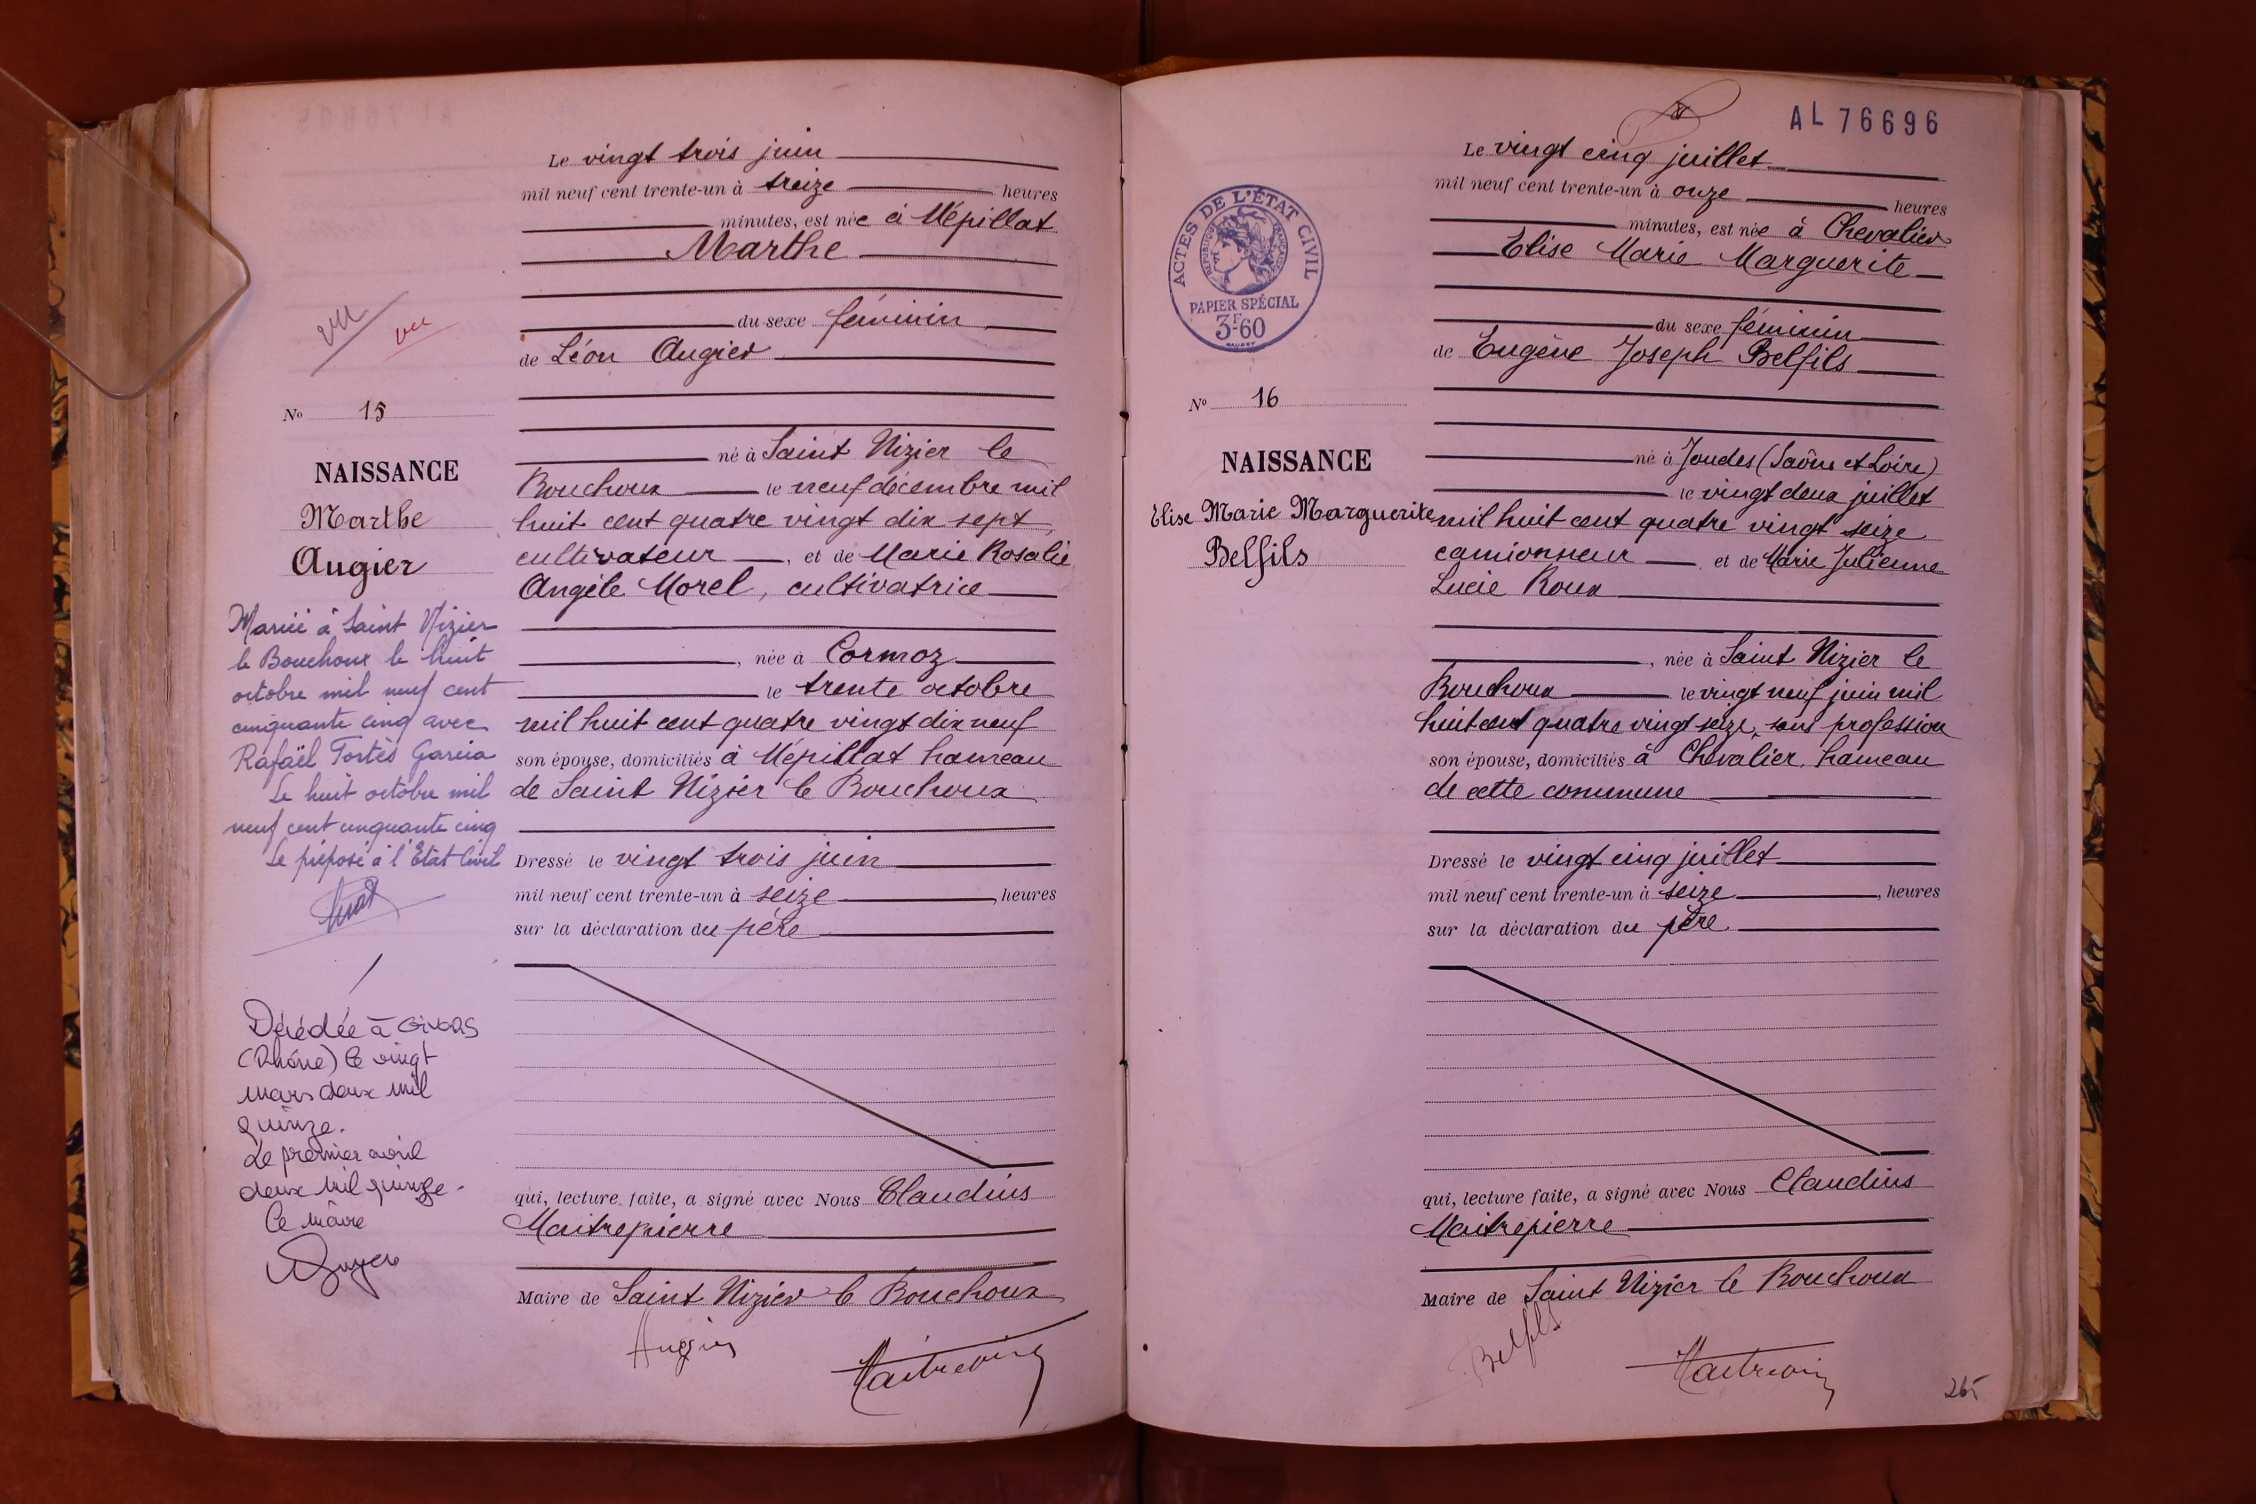 Le vingt trois juin
mil neuf cent trente-un à treize heures
minutes, est née à Mépillat
Marthe
du sexe féminin
de Léon Augier
vu
vu
No 15
NAISSANCE
Marthe
Augier
né à Saint Nizier le
Bouchoux le neuf décembre mil
huit cent quatre vingt dix sept,
cultivateur, et de Marie Rosalie
Angèle Morel, cultivatrice
, née à Cormoz
le trente octobre
mil huit cent quatre vingt dix neuf
son épouse, domiciliés à Mépillat hameau
de Saint Nizier le Bouchoux
Dressé le vingt trois juin
mil neuf cent trente-un à seize, heures
sur la déclaration du père
qui, lecture faite, a signé avec Nous Claudius
Maitrepierre
Maire de Saint Nizier le Bouchoux
Augier
Mariée à Saint Nizier
le Bouchoux le huit
octobre mil neuf cent
cinquante cinq avec
Rafaël Tortès Garcia
Le huit octobre mil
neuf cent cinquante cinq
Le préposé à l'Etat Civil
Décédée à Givors
(Rhône) le vingt
mars deux mil
quinze.
Le premier avril
deux mil quinze.
Le maire
AL 76696
Le vingt cinq juillet
mil neuf cent trente-un à onze heures
minutes, est née à Chevalier
Elise Marie Marguerite
du sexe féminin
de Eugène Joseph Belfils
ACTES DE L'ÉTAT CIVIL
RÉPUBLIQUE FRANÇAISE
PAPIER SPÉCIAL
3F60
No 16
NAISSANCE
Elise Marie Marguerite
Belfils
né à Joudes (Saône et Loire)
le vingt deux juillet
mil huit cent quatre vingt seize
camionneur et de Marie Julienne
Lucie Roux
, née à Saint Nizier le
Bouchoux le vingt neuf juin mil
huit cent quatre vingt seize, sans profession
son épouse, domiciliés à Chevalier, hameau
de cette commune
Dressé le vingt cinq juillet
mil neuf cent trente-un à seize, heures
sur la déclaration du père
qui, lecture faite, a signé avec Nous Claudius
Maitrepierre
Maire de Saint Nizier le Bouchoux
Belfils
265